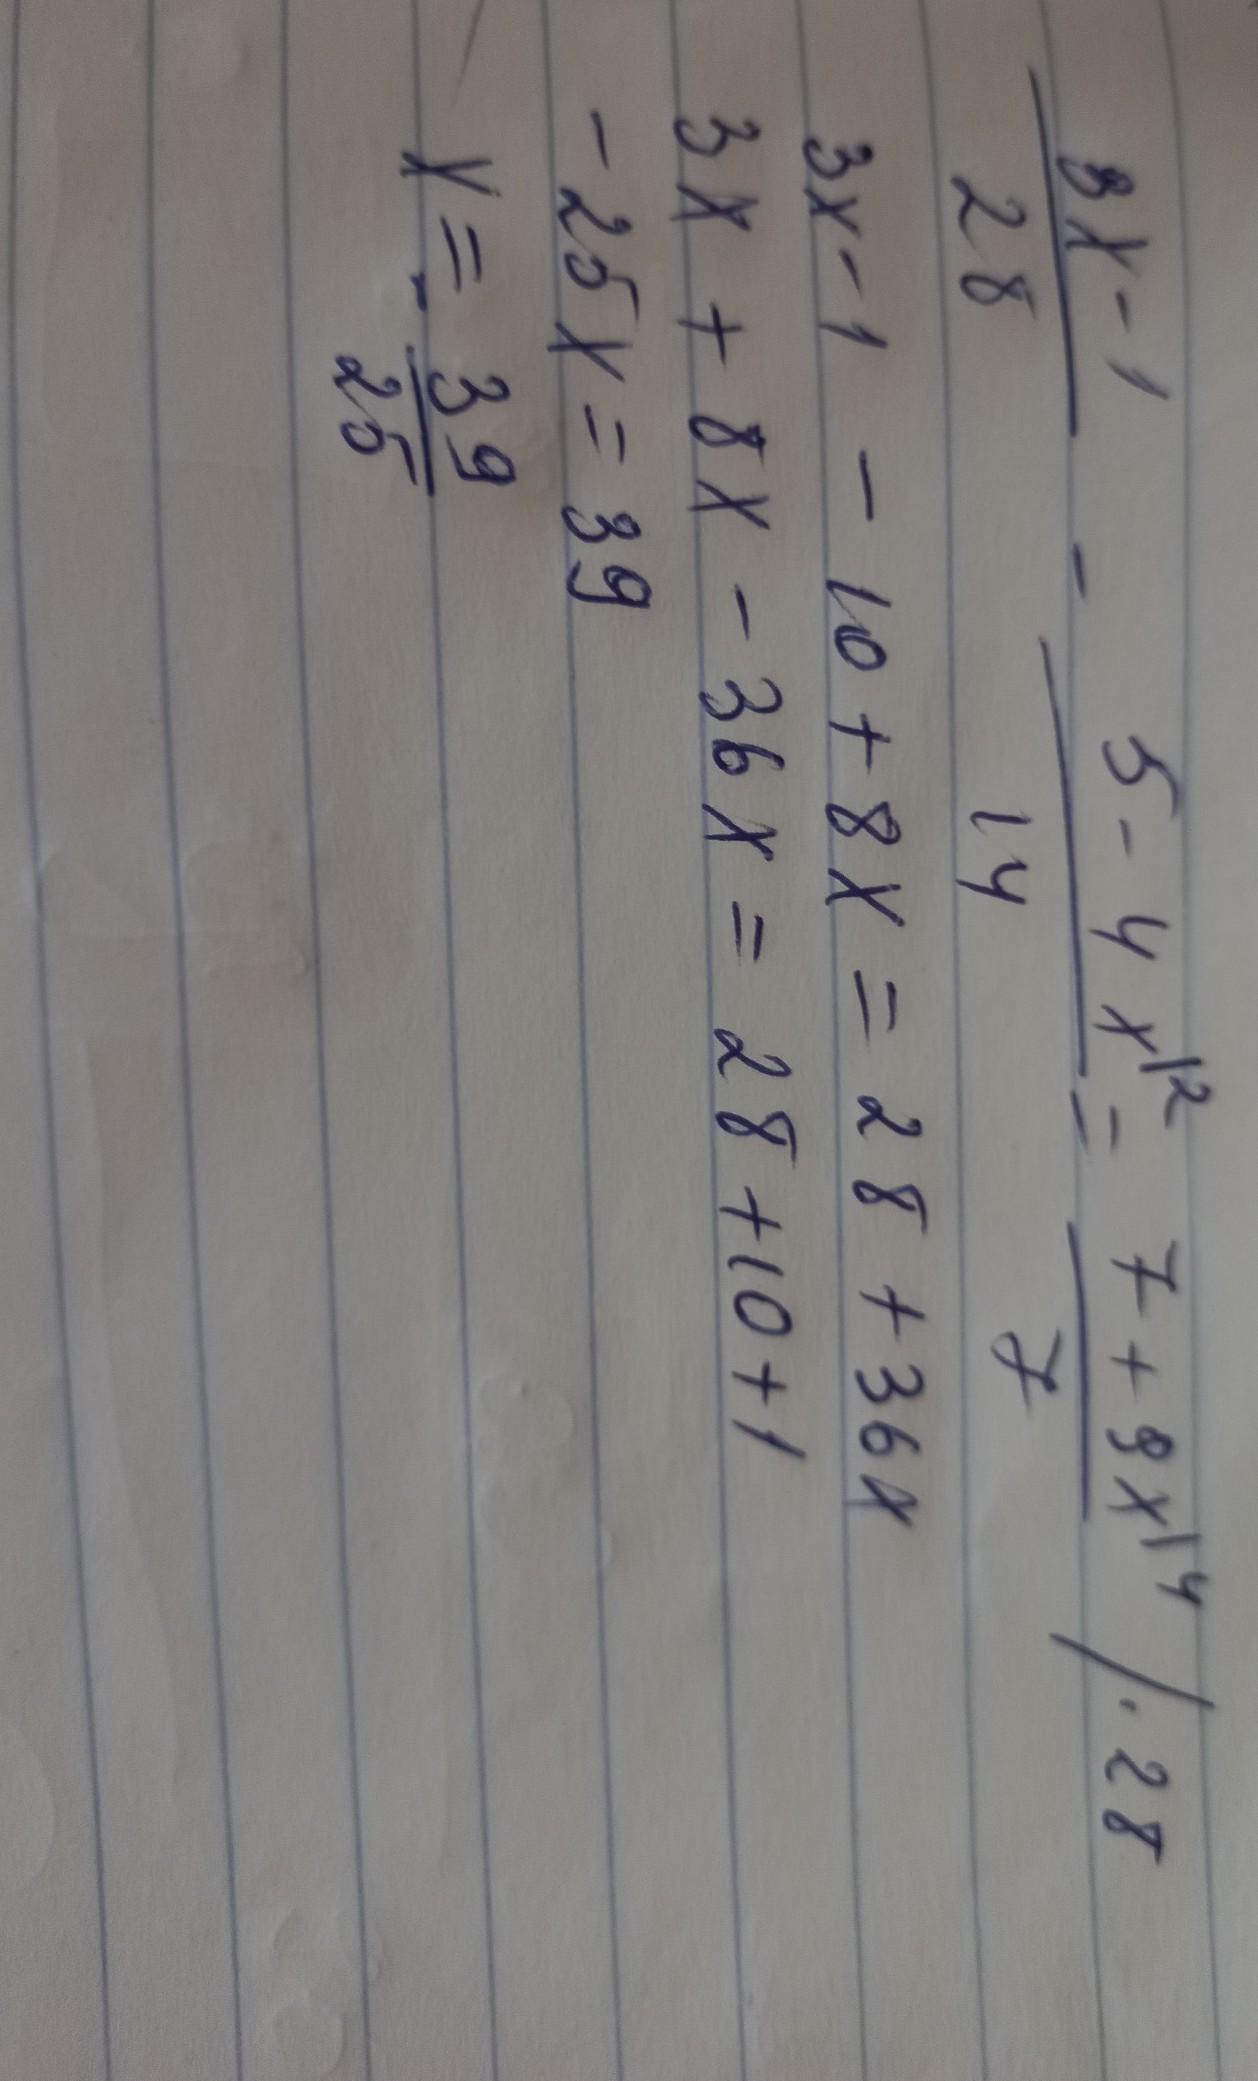 3x-1 - 5-4x|2 = 7+9x|4 /.28
28 14 7
3x-1 - 10+8x = 28+36x
3x+8x-36x = 28+10+1
-25x = 39
x = - 39
25